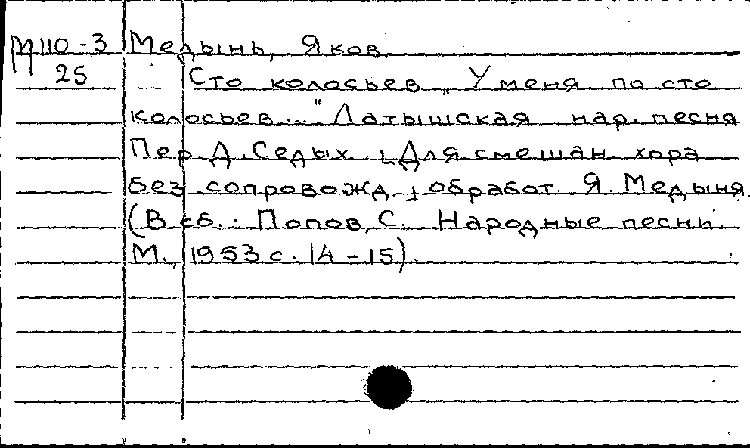 М110-3 Медынь, Яков.
25 Сто колосьев „У меня по сто
колосьев..." Латышская нар. песня
Пер. Д. Седых. [Для смешан. хора
без сопровожд.] обработ. Я. Медыня.
(В сб.: Попов, С. Народные песни.
М., 1953 с. 14-15).